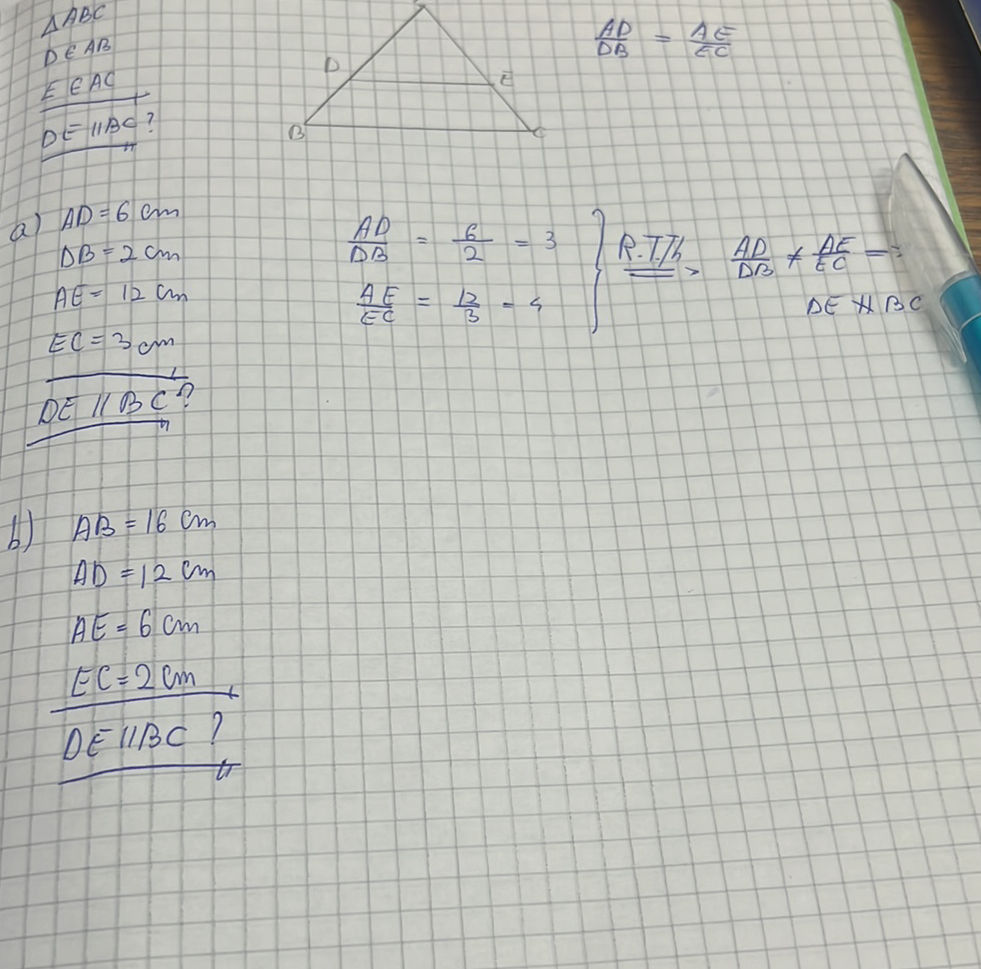 △ABC
D∈AB
E∈AC
DE∥BC?
D
E
B
C
AD/DB = AE/EC
a) AD=6 cm
DB=2 cm
AE= 12 cm
EC=3cm
DE∥BC?
AD/DB = 6/2 = 3
AE/EC = 12/3 = 4
R.T.Th AD/DB ≠ AE/EC =>
DE ∦ BC
b) AB=16 cm
AD=12 cm
AE=6 cm
EC=2 cm
DE∥BC ?